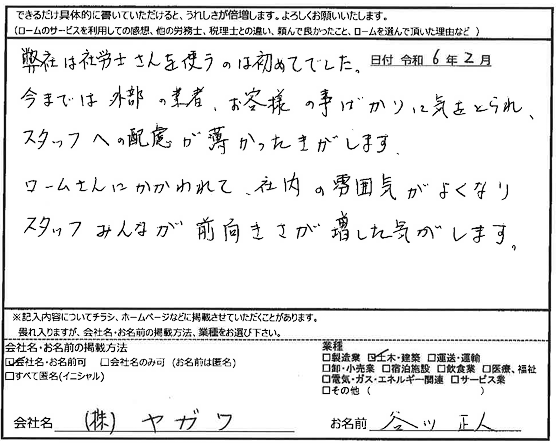 できるだけ具体的に書いていただけると、うれしさが倍増します。よろしくお願いいたします。
(ロームのサービスを利用しての感想、他の労務士、税理士との違い、頼んで良かったこと、ロームを選んで頂いた理由など )
日付 令和 6 年 2 月
弊社は社労士さんを使うのは初めてでした。
今までは外部の業者、お客様の事ばかりに気をとられ、
スタッフへの配慮が薄かったきがします.
ロームさんにかかわれて、社内の雰囲気がよくなり
スタッフみんなが前向きさが増した気がします。
※記入内容についてチラシ、ホームページなどに掲載させていただくことがあります。
畏れ入りますが、会社名・お名前の掲載方法、業種をお選び下さい。
会社名・お名前の掲載方法
☑会社名・お名前可 □会社名のみ可 (お名前は匿名)
□すべて匿名(イニシャル)
業種
□製造業 ☑土木・建築 □運送・運輸
□卸・小売業 □宿泊施設 □飲食業 □医療、福祉
□電気・ガス・エネルギー関連 □サービス業
□その他 ( )
会社名 (株) ヤガワ
お名前 谷川 正人